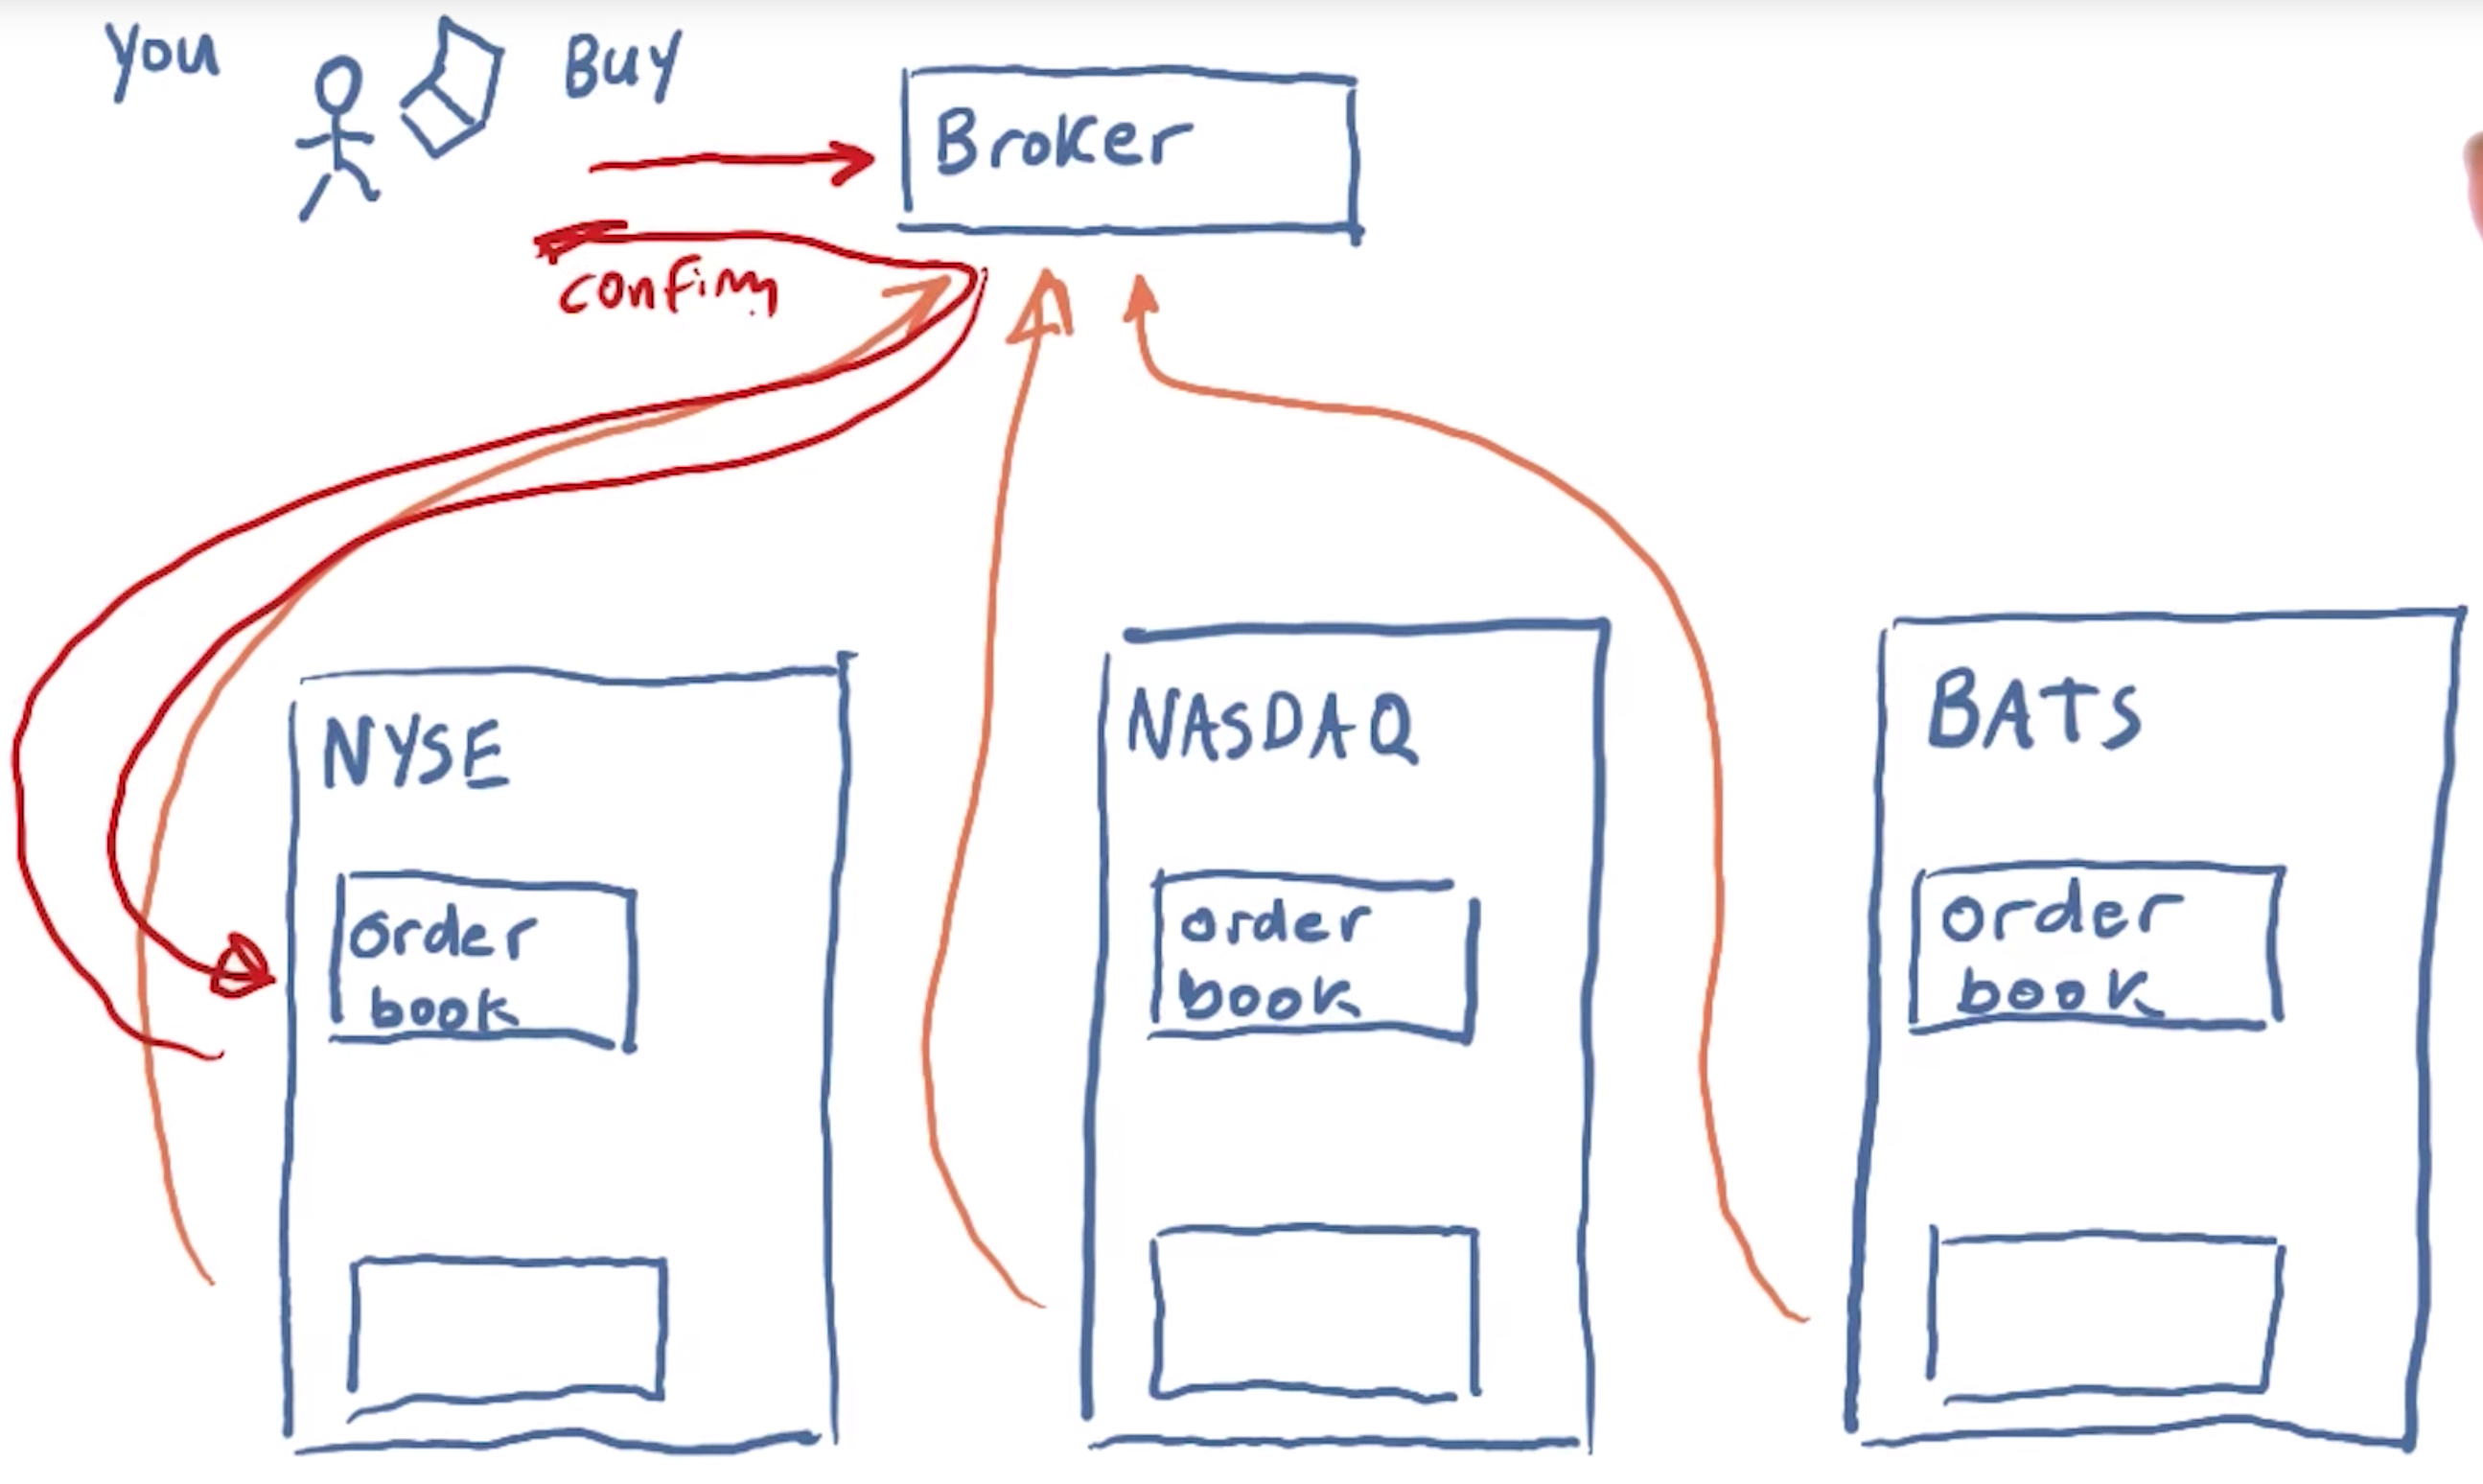 You
Buy
Broker
confim
NYSE
order
book
NASDAQ
order
book
BATS
order
book